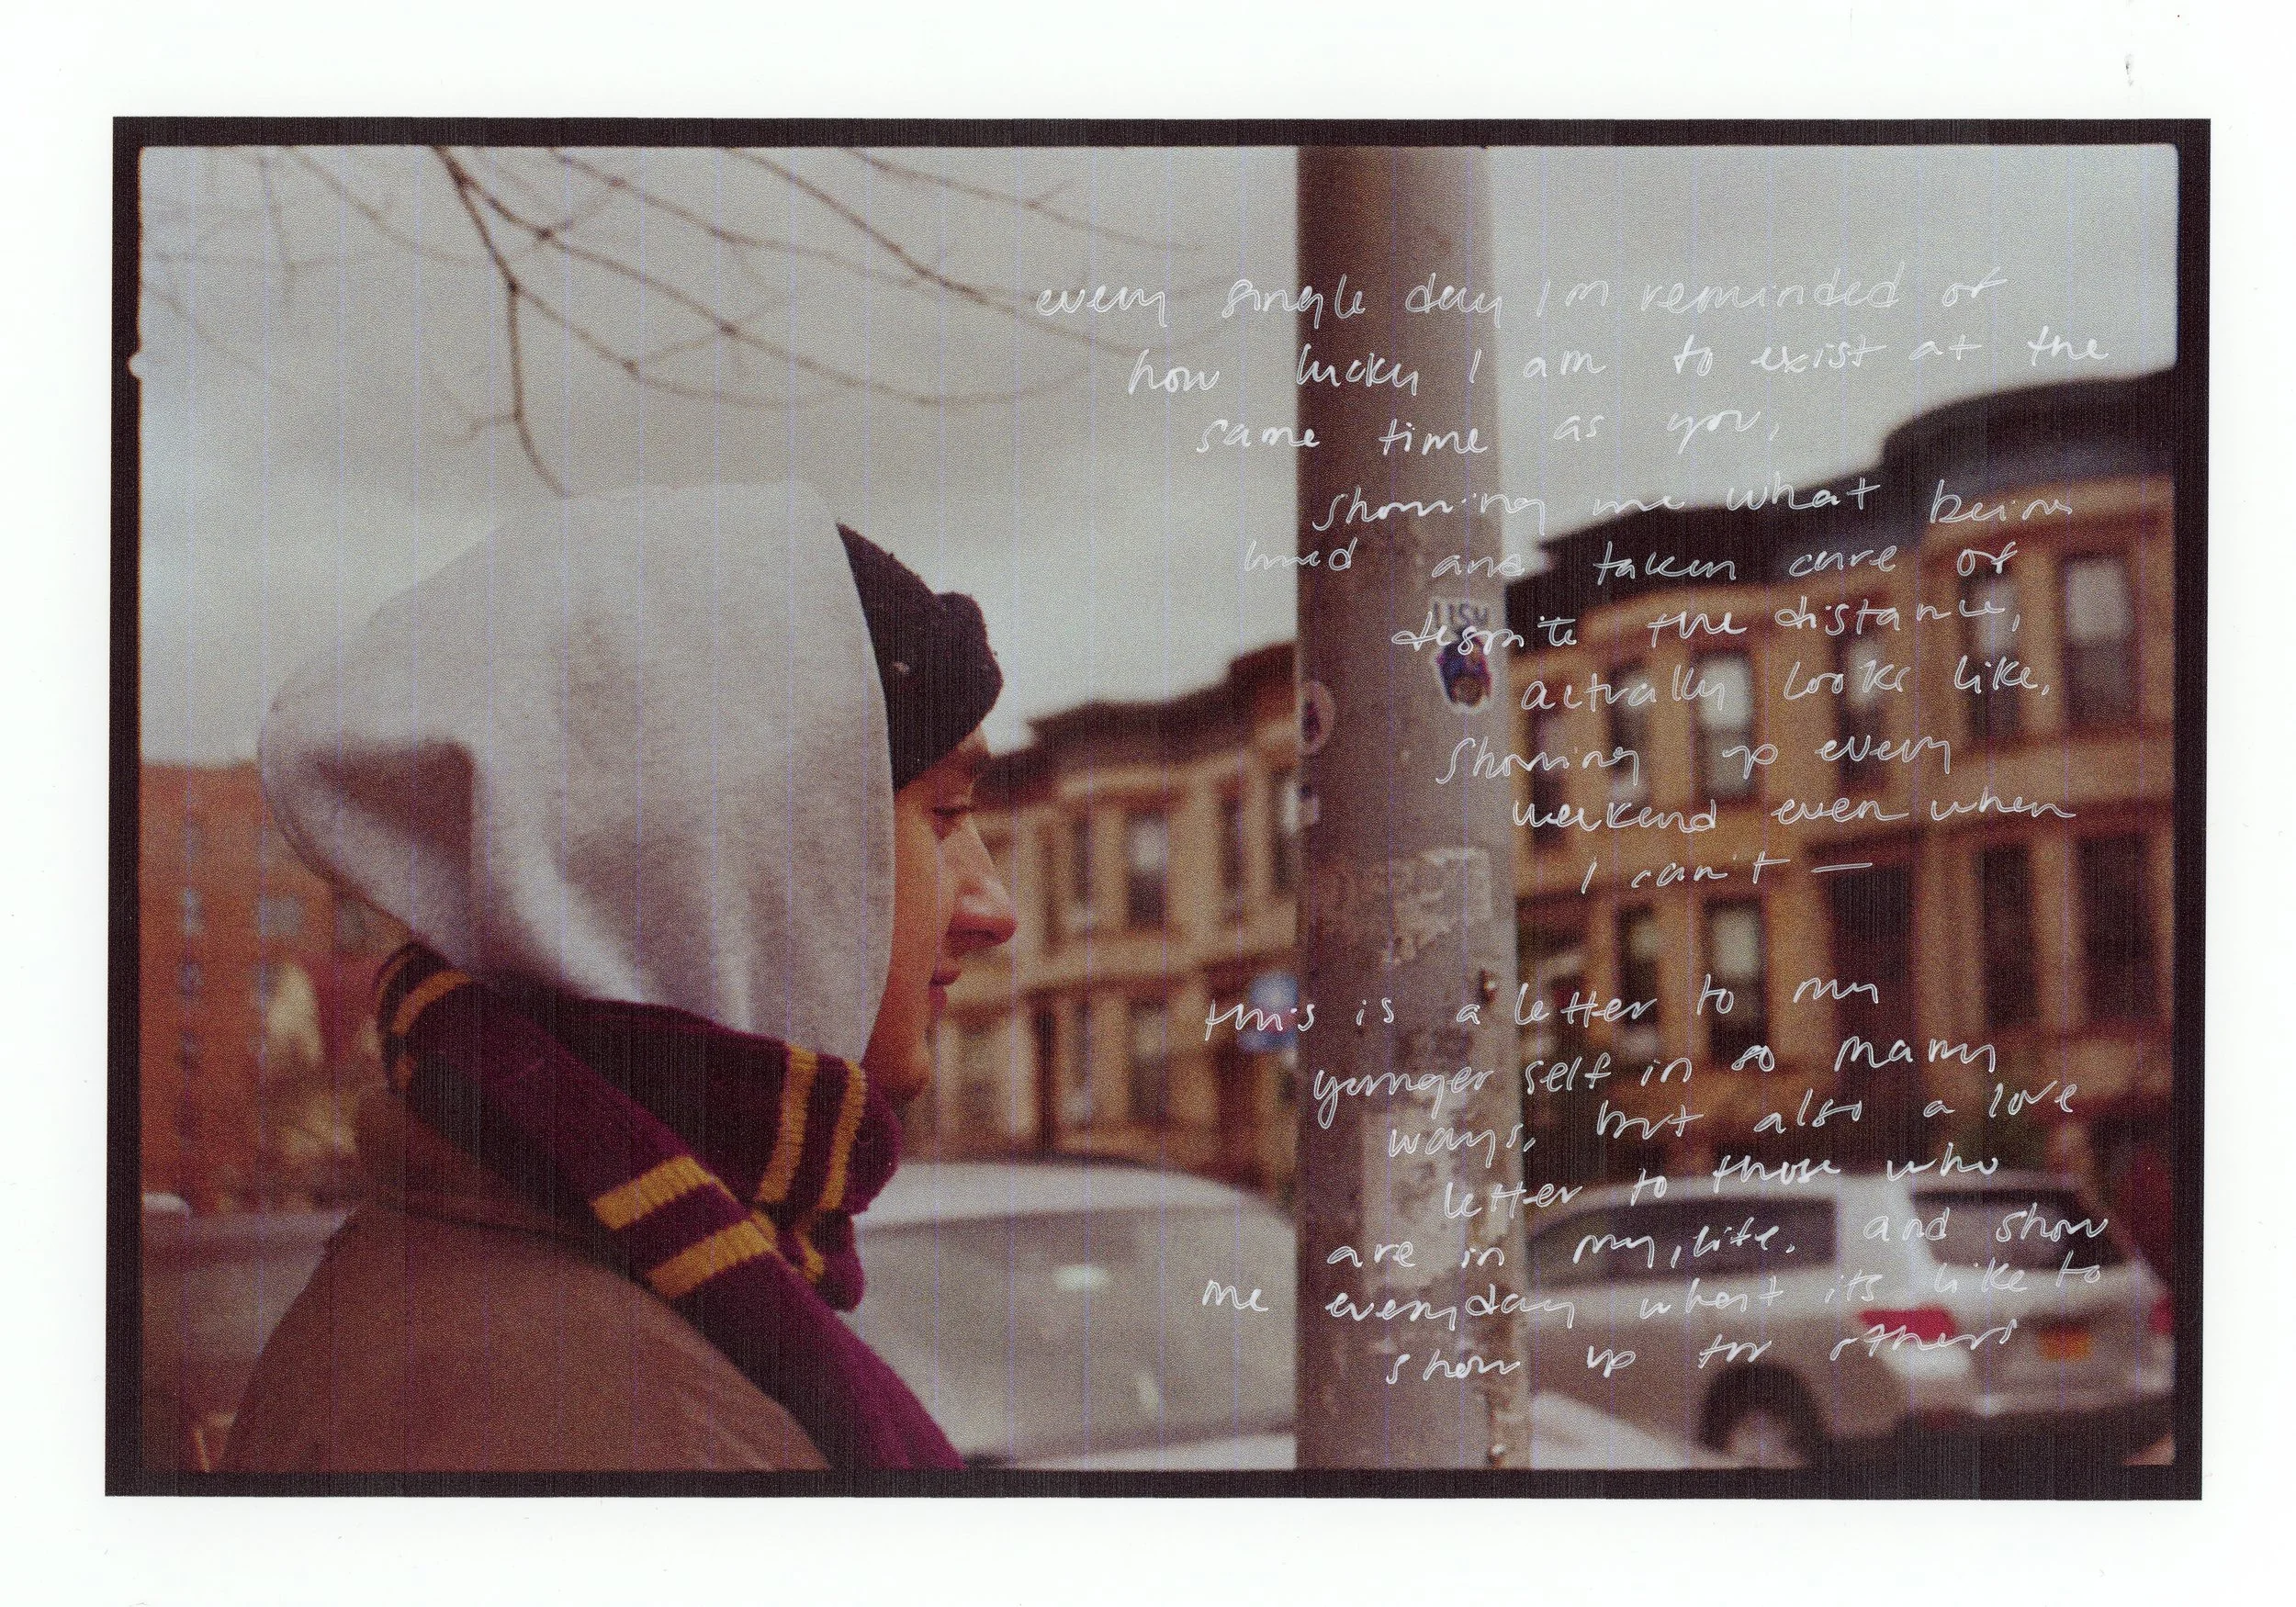 every single day I'm reminded of
how lucky I am to exist at the
same time as you,
showing me what being
loved and taken care of
despite the distance,
actually looks like,
showing up every
weekend even when
I can't —
this is a letter to my
younger self in so many
ways, but also a love
letter to those who
are in my life. and show
me everyday what its like to
show up for others